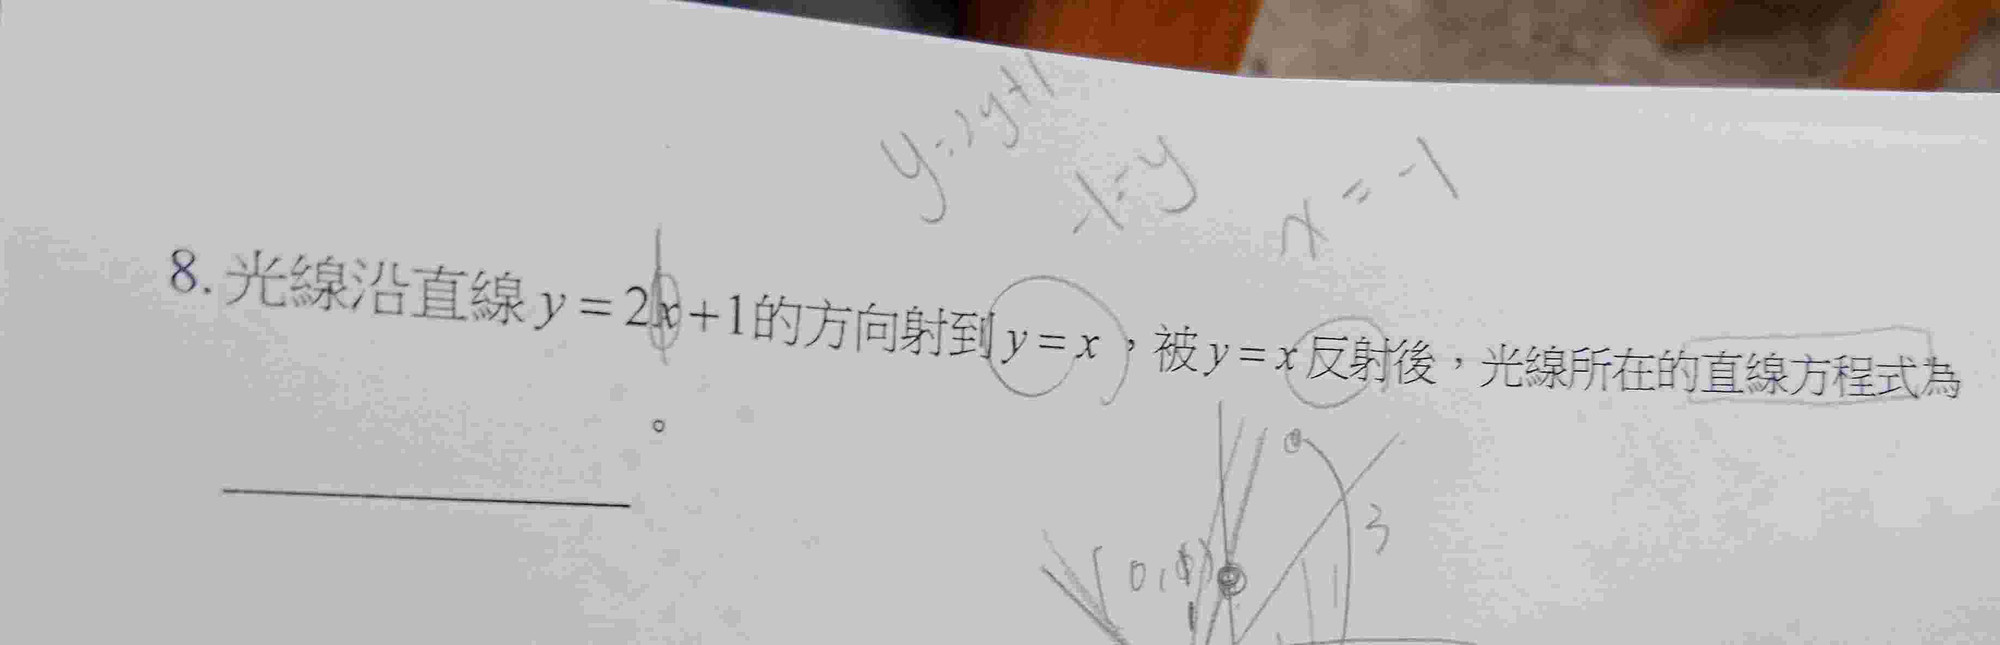 y=2y+1
-1=y
x=-1
8. 光線沿直線 y = 2x+1的方向射到 y = x ，被 y = x 反射後，光線所在的直線方程式為
。
3
(0,1)
1